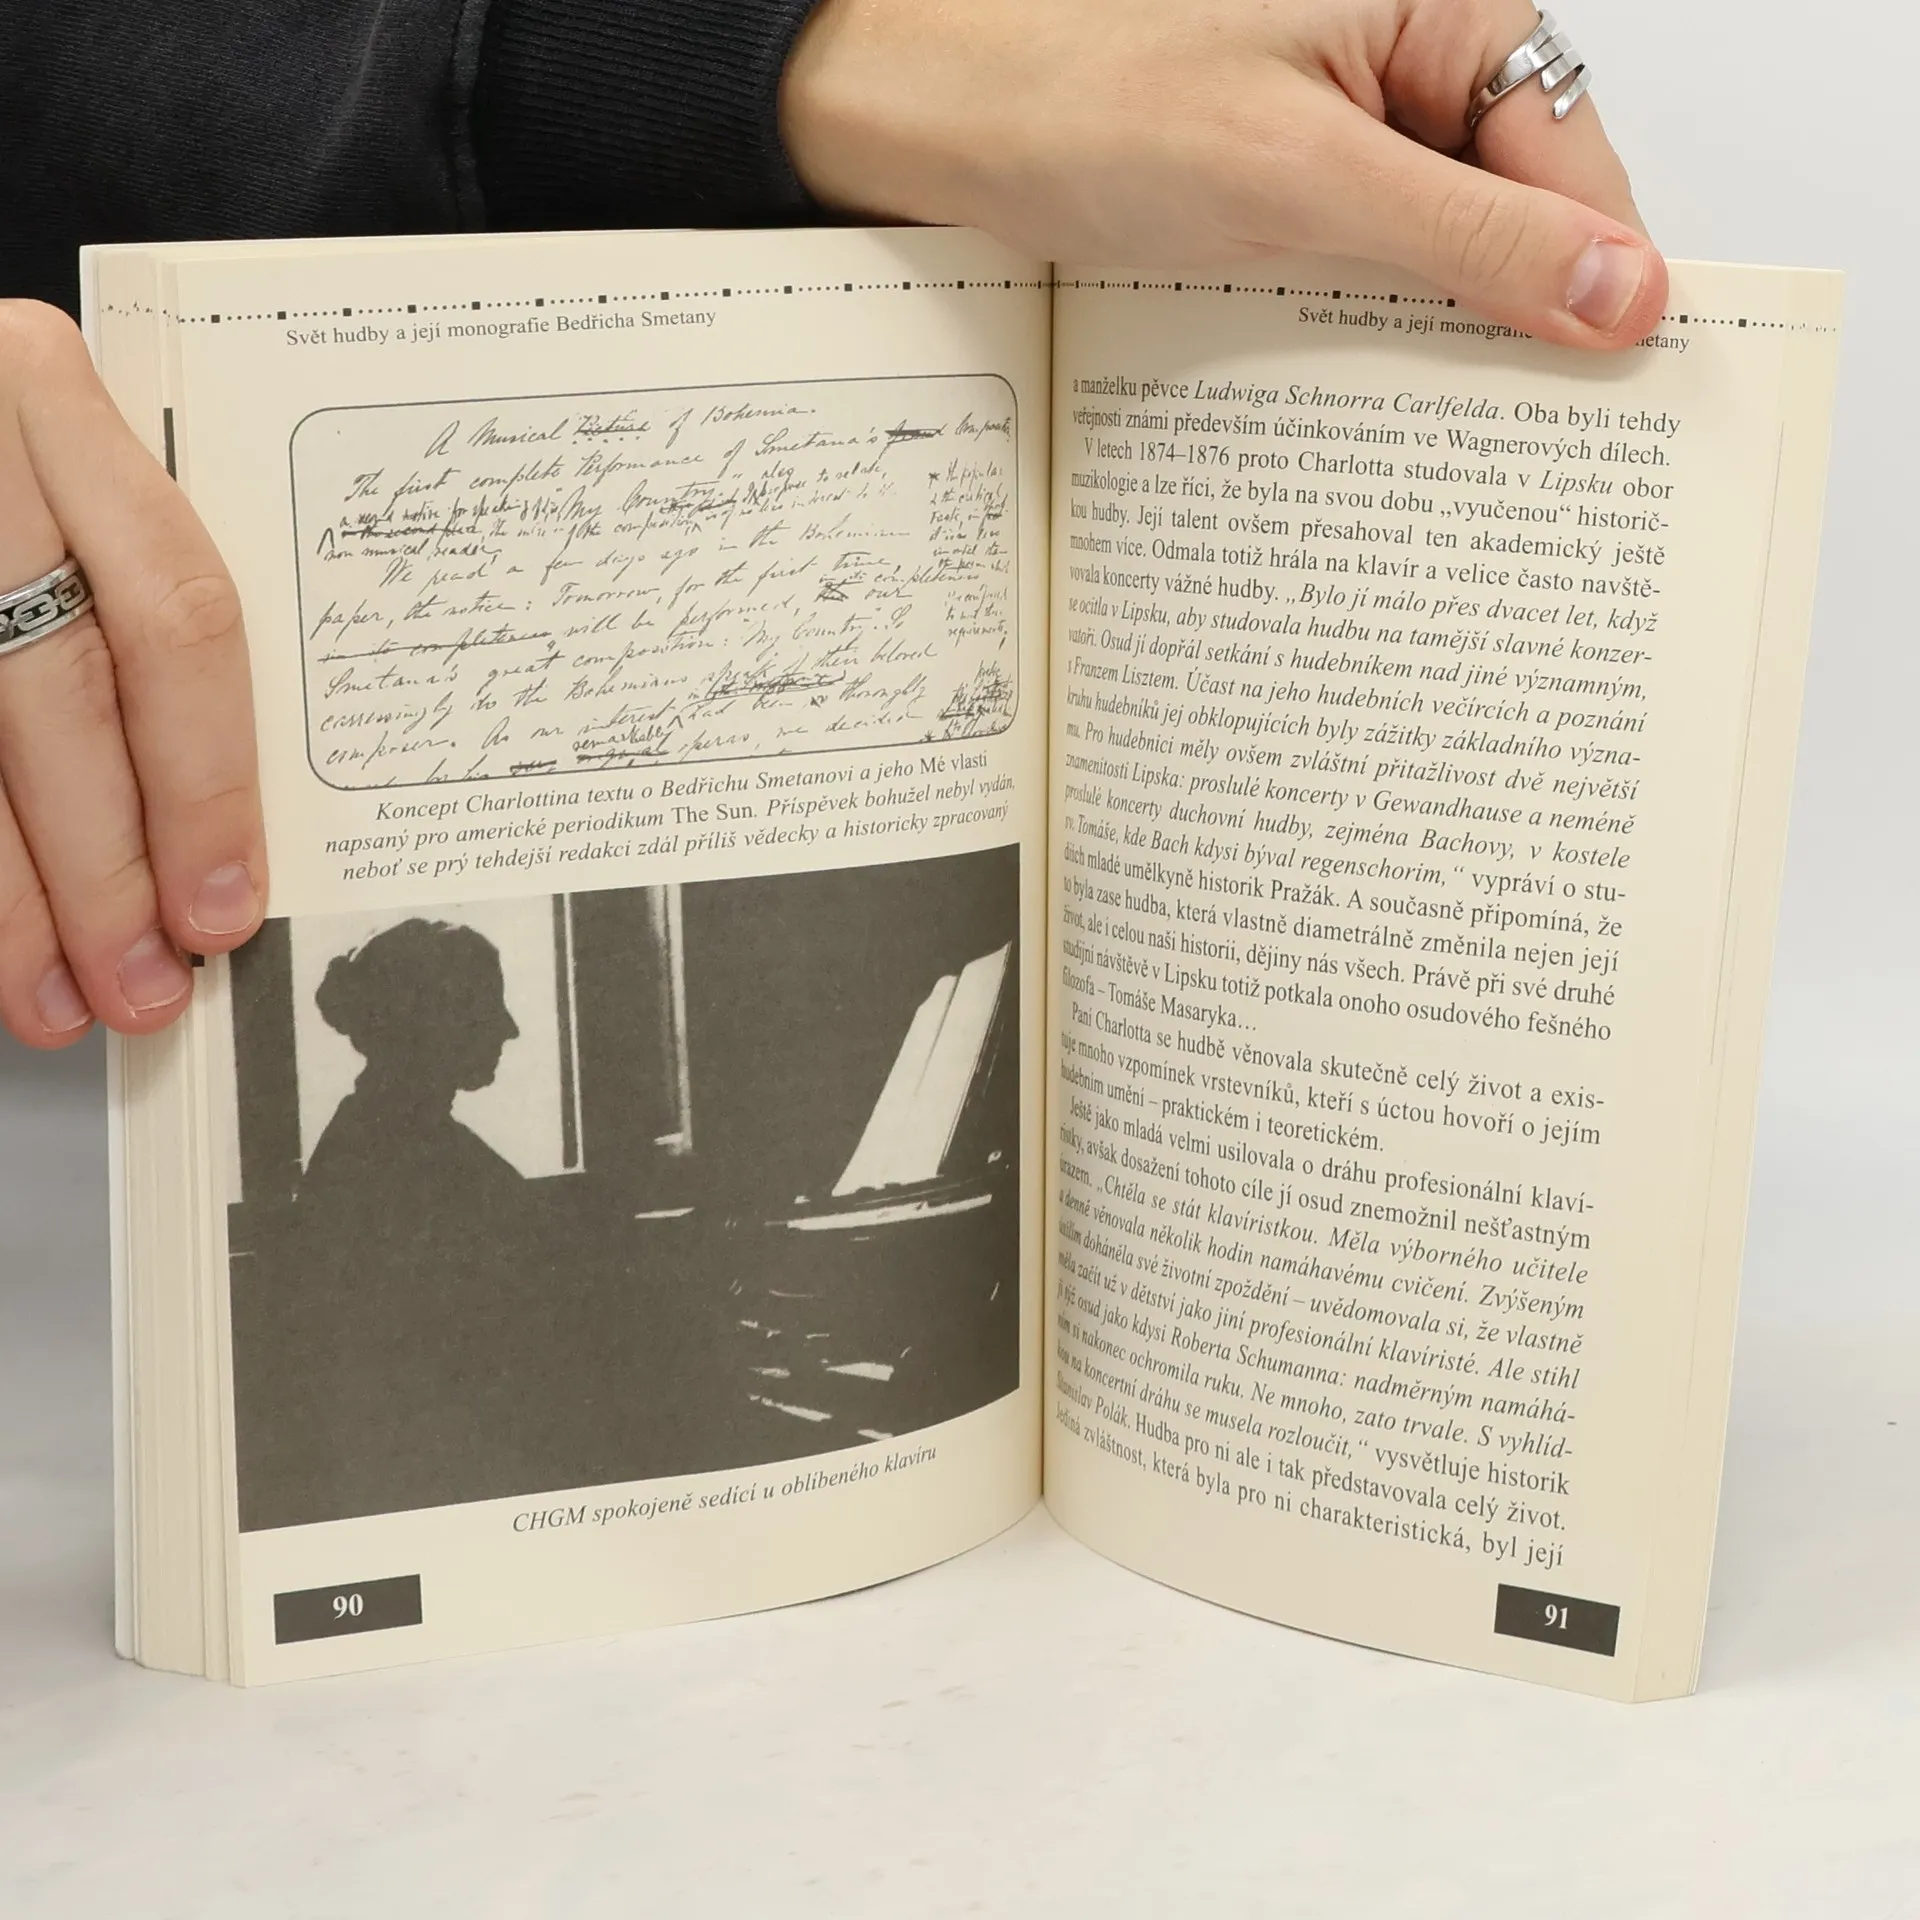 Svět hudby a její monografie Bedřicha Smetany
A Musical Picture of Bohemia.
The first complete Performance of Smetana's Grand
"My Country."
non musical reader
We read a few days ago in the Bohemian
paper, the notice: Tomorrow, for the first time,
in its completeness will be performed, our
Smetana's great composition: "My Country". So
to the Bohemians speak of their beloved
composer. As our interest had been so thoroughly
remarkable operas, we decided
Koncept Charlottina textu o Bedřichu Smetanovi a jeho Mé vlasti
napsaný pro americké periodikum The Sun. Příspěvek bohužel nebyl vydán,
neboť se prý tehdejší redakci zdál příliš vědecky a historicky zpracovaný
CHGM spokojeně sedící u oblíbeného klavíru
90
Svět hudby a její monografie
a manželku pěvce Ludwiga Schnorra Carlfelda. Oba byli tehdy
veřejnosti známi především účinkováním ve Wagnerových dílech.
V letech 1874–1876 proto Charlotta studovala v Lipsku obor
muzikologie a lze říci, že byla na svou dobu „vyučenou“ historič-
kou hudby. Její talent ovšem přesahoval ten akademický ještě
mnohem více. Odmala totiž hrála na klavír a velice často navště-
vovala koncerty vážné hudby. „Bylo jí málo přes dvacet let, když
se ocitla v Lipsku, aby studovala hudbu na tamější slavné konzer-
vatoři. Osud jí dopřál setkání s hudebníkem nad jiné významným,
s Franzem Lisztem. Účast na jeho hudebních večírcích a poznání
kruhu hudebníků jej obklopujících byly zážitky základního význa-
mu. Pro hudebnici měly ovšem zvláštní přitažlivost dvě největší
znamenitosti Lipska: proslulé koncerty v Gewandhause a neméně
proslulé koncerty duchovní hudby, zejména Bachovy, v kostele
sv. Tomáše, kde Bach kdysi býval regenschorim,“ vypráví o stu-
diích mladé umělkyně historik Pražák. A současně připomíná, že
to byla zase hudba, která vlastně diametrálně změnila nejen její
život, ale i celou naši historii, dějiny nás všech. Právě při své druhé
studijní návštěvě v Lipsku totiž potkala onoho osudového fešného
filozofa – Tomáše Masaryka…
Paní Charlotta se hudbě věnovala skutečně celý život a exis-
tuje mnoho vzpomínek vrstevníků, kteří s úctou hovoří o jejím
hudebním umění – praktickém i teoretickém.
Ještě jako mladá velmi usilovala o dráhu profesionální klaví-
ristky, avšak dosažení tohoto cíle jí osud znemožnil nešťastným
úrazem. „Chtěla se stát klavíristkou. Měla výborného učitele
a denně věnovala několik hodin namáhavému cvičení. Zvýšeným
úsilím doháněla své životní zpoždění – uvědomovala si, že vlastně
měla začít už v dětství jako jiní profesionální klavíristé. Ale stihl
ji týž osud jako kdysi Roberta Schumanna: nadměrným namáhá-
ním si nakonec ochromila ruku. Ne mnoho, zato trvale. S vyhlíd-
kou na koncertní dráhu se musela rozloučit,“ vysvětluje historik
Stanislav Polák. Hudba pro ni ale i tak představovala celý život.
Jediná zvláštnost, která byla pro ni charakteristická, byl její
91